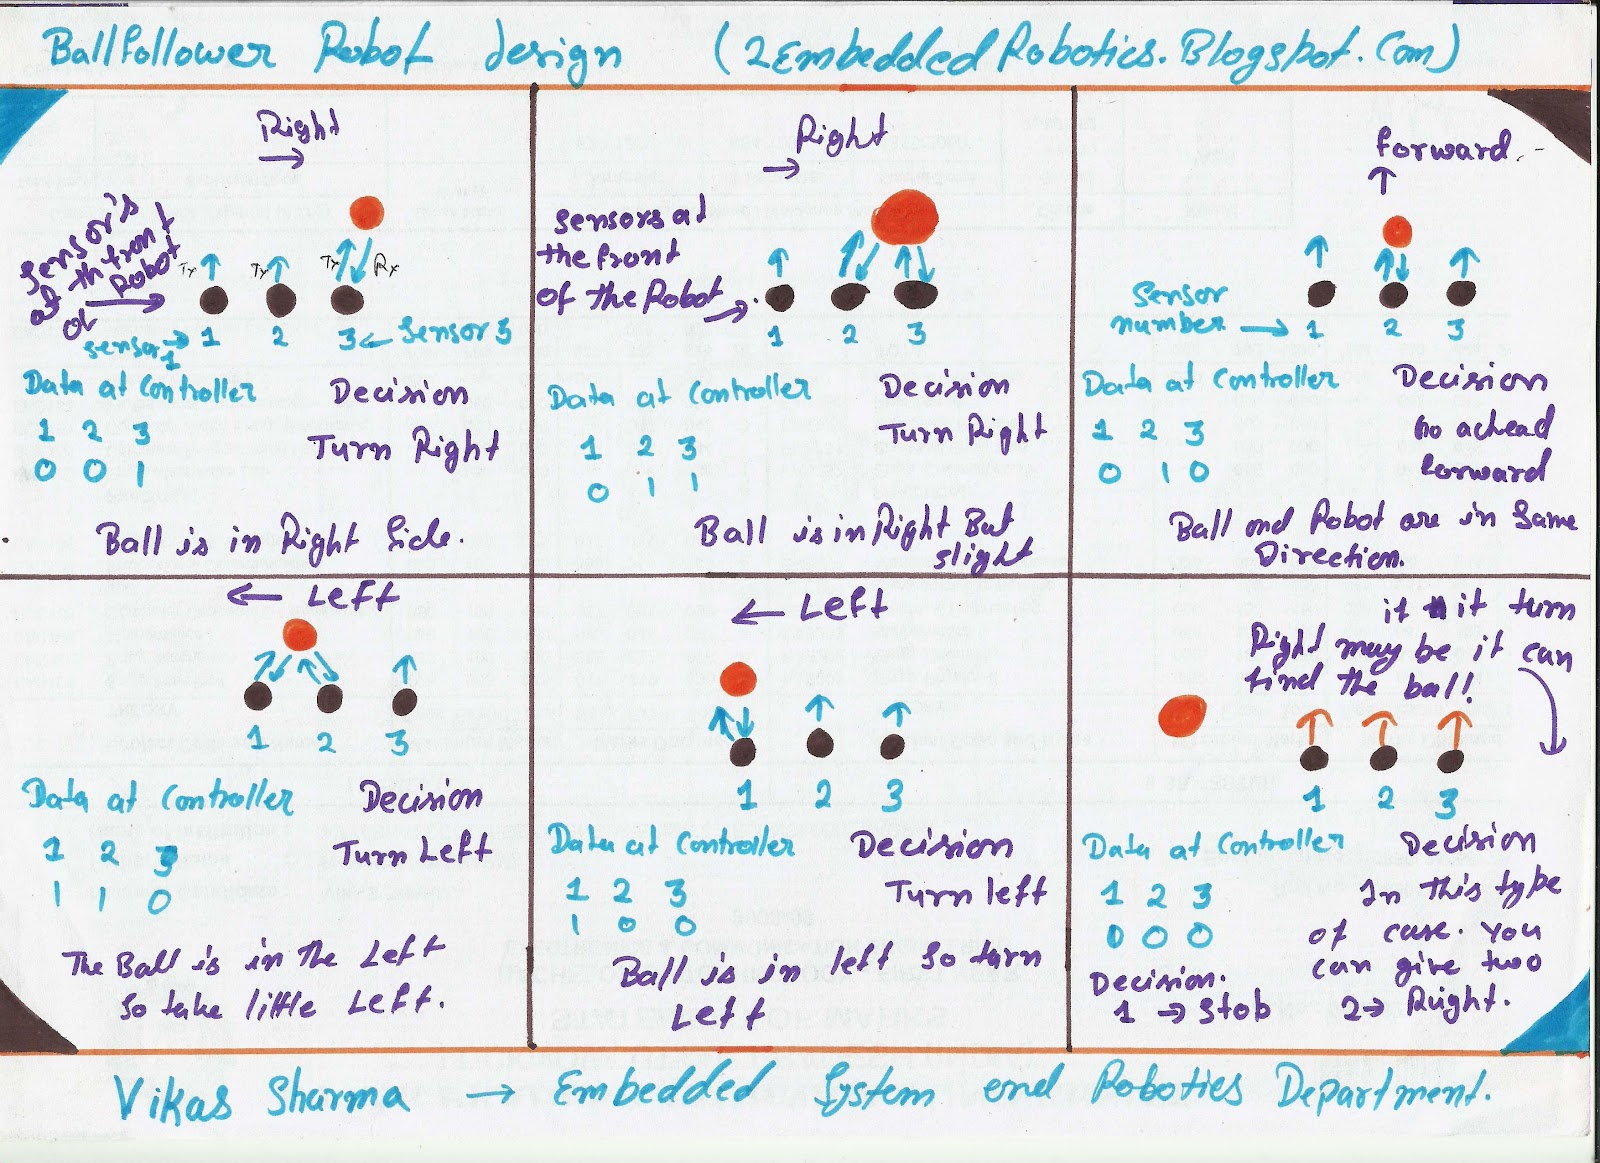 Ballfollower Robot design (2EmbeddedRobotics.Blogspot.Com)
Right
→
Sensor's
at th front
of Robot
Tx Tx Tx Rx
1 2 3 ← Sensor 3
Sensor 1 →
Data at Controller
1 2 3
0 0 1
Decision
Turn Right
Ball is in Right Side.
Right
→
Sensors at
the front
of the Robot →
1 2 3
Data at Controller
1 2 3
0 1 1
Decision
Turn Right
Ball is in Right But
slight
forward.
↑
Sensor
number → 1 2 3
Data at Controller
1 2 3
0 1 0
Decision
Go achead
forward
Ball and Robot are in Same
Direction.
← Left
1 2 3
Data at Controller
1 2 3
1 1 0
Decision
Turn Left
The Ball is in the Left
So take little Left.
← Left
1 2 3
Data at Controller
1 2 3
1 0 0
Decision
Turn left
Ball is in left so turn
Left
it it turn
Right may be it can
find the ball!
1 2 3
Data at Controller
1 2 3
0 0 0
Decision
In this type
of case. You
can give two
Decision.
1 → Stob 2 → Right.
Vikas Sharma → Embedded System and Robotics Department.